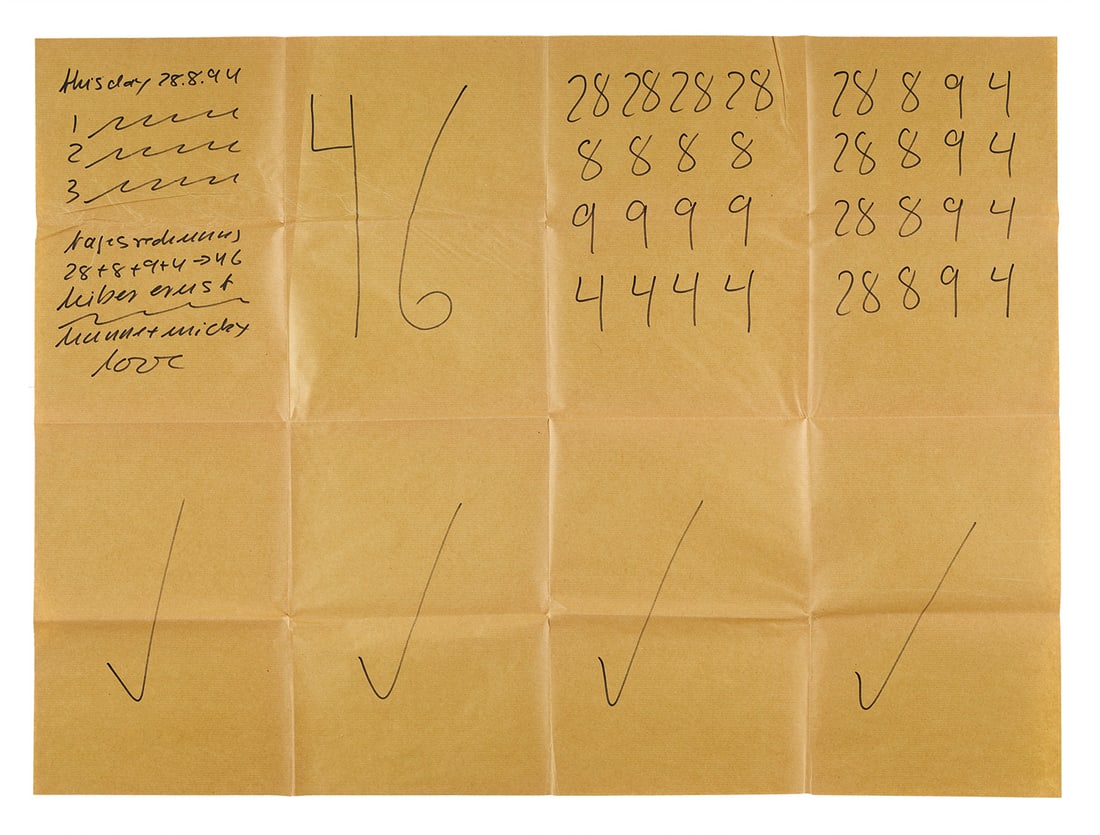 this day 28.8.94
1
2
3
tagesrechnung
28+8+9+4→46
lieber ernst
hanne+micky
love
46
28 28 28 28
8 8 8 8
9 9 9 9
4 4 4 4
28 8 9 4
28 8 9 4
28 8 9 4
28 8 9 4